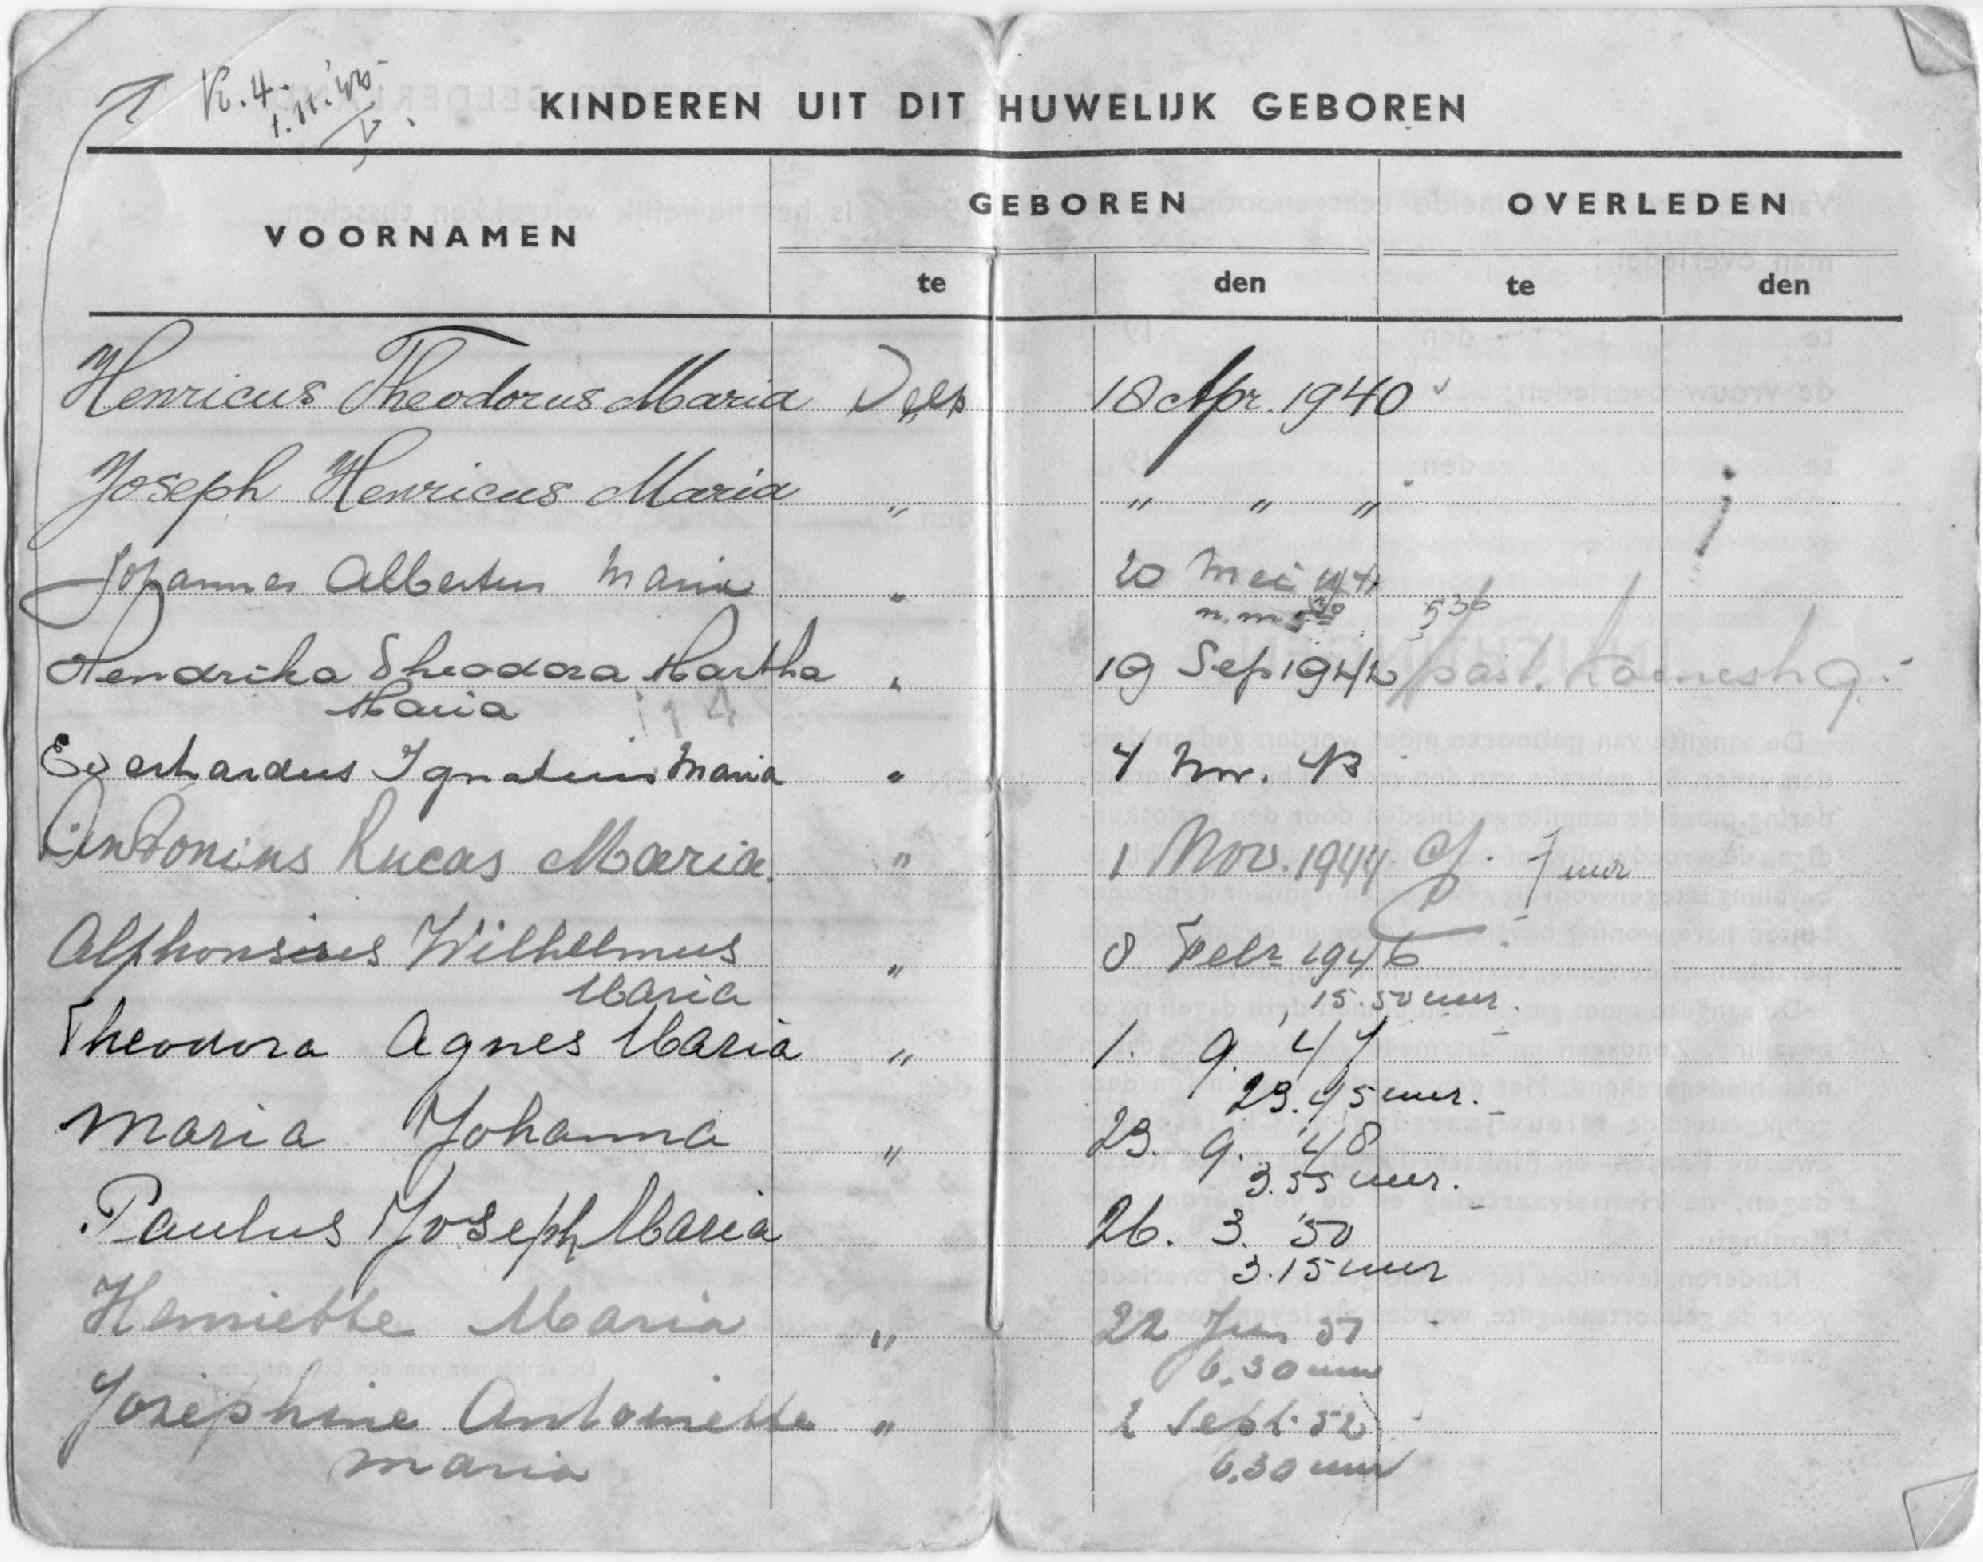 K. 4.
1. 11. '46
KINDEREN UIT DIT HUWELIJK GEBOREN
VOORNAMEN GEBOREN OVERLEDEN
te den te den
Henricus Theodorus Maria Velp 18 Apr. 1940
Joseph Henricus Maria " " " "
Johannes Albertus Maria " 20 Mei 1941
n.m. 5³⁰ 5³⁶
Hendrika Theodora Martha " 19 Sep 1942
Maria
Everhardus Ignatius Maria " 4 Nov. 43
Antonius Lucas Maria. " 1 Nov. 1944 7 uur
Alphonsius Wilhelmus " 8 Febr 1946
Maria 15.50 uur.
Theodora Agnes Maria " 1. 9. '47
23.45 uur.
Maria Johanna " 23. 9. '48
3.55 uur.
Paulus Joseph Maria 26. 3. '50
3.15 uur
Henriette Maria " 22 Jun 51
6.30 uur
Josephine Antoinette " 2 Sept. 52
Maria 6.30 uur